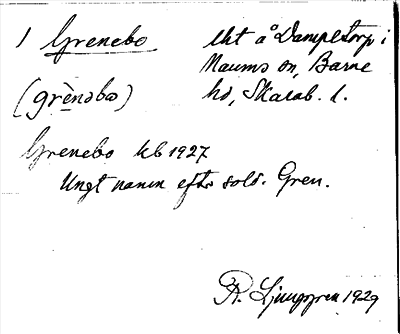 1 Grenebo lht å Dampetorp i
Naums sn, Barne
(grènəbo) hd, Skarab. l.
Grenebo kb 1927
Ungt namn efter sold. Gren.
R. Ljunggren 1929